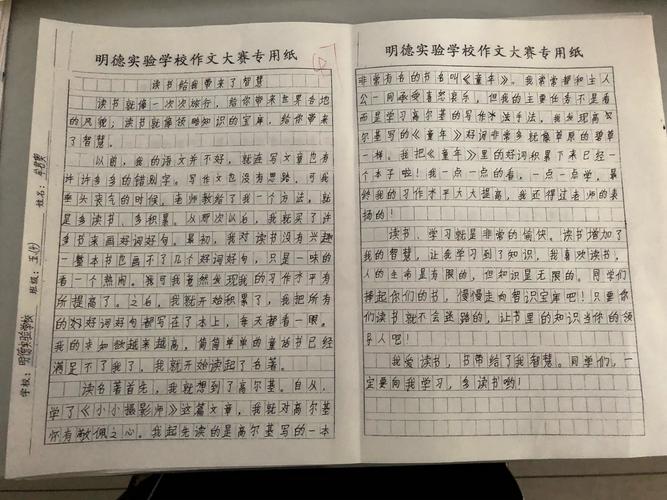 明德实验学校作文大赛专用纸
读书给我带来了智慧
读书就像一次次旅行，给你带来世界各地
的风貌；读书就像领略知识的宝库，给你带来
了智慧。
以前，我的语文并不好，就连写文章也有
许许多多的错别字。写作文也没有思路，可我
垂头丧气的时候，老师教给了我一个方法，就
是多读书、多积累。从那次以后，我就买了许
多书来画好词好句。最初，我对读书没有兴趣
一整本书也画不了几个好词好句，只是一味的
看一个热闹。我可我竟然发现我的习作水平有
所提高了。之后，我就开始积累了，我把所有
的好好词好句都写在了本上，每天都看一眼。
我的求知欲越来越高，简简单单的童话书已经
满足不了我了，我就开始读起了名著。
读名著首先，我就想到了高尔基。自从
学了《小小摄影师》这篇文章，我就对高尔基
怀有敬佩之心。我起先读的是高尔基写的一本
学校：明德实验学校 班级：五 姓名：
明德实验学校作文大赛专用纸
非常有名的书名叫《童年》。我常常帮和主人
公一同承受喜怒哀乐，但我的主要任务不是看
而是学习高尔基的写作手法手法，我发现高
尔基写的《童年》好词非常多就像草原的碧草
一样。我把《童年》里的好词积累下来已经一
个本子啦！我一点一点的看，一点一点学，最
终我的习作水平大大提高，我还得过老师的表
扬的！
读书、学习就是非常的愉快。读书增加了
我的智慧，让我学习到了知识，我喜欢读书，
人的生命是有限的，但知识是无限的。同学们
捧起你们的书，慢慢走向智识宝库吧！只要你
们读书就不会迷路的，让书里的知识当你的领
导人吧！
我爱读书，书带给了我智慧。同学们，一
定要向我学习，多读书哟！